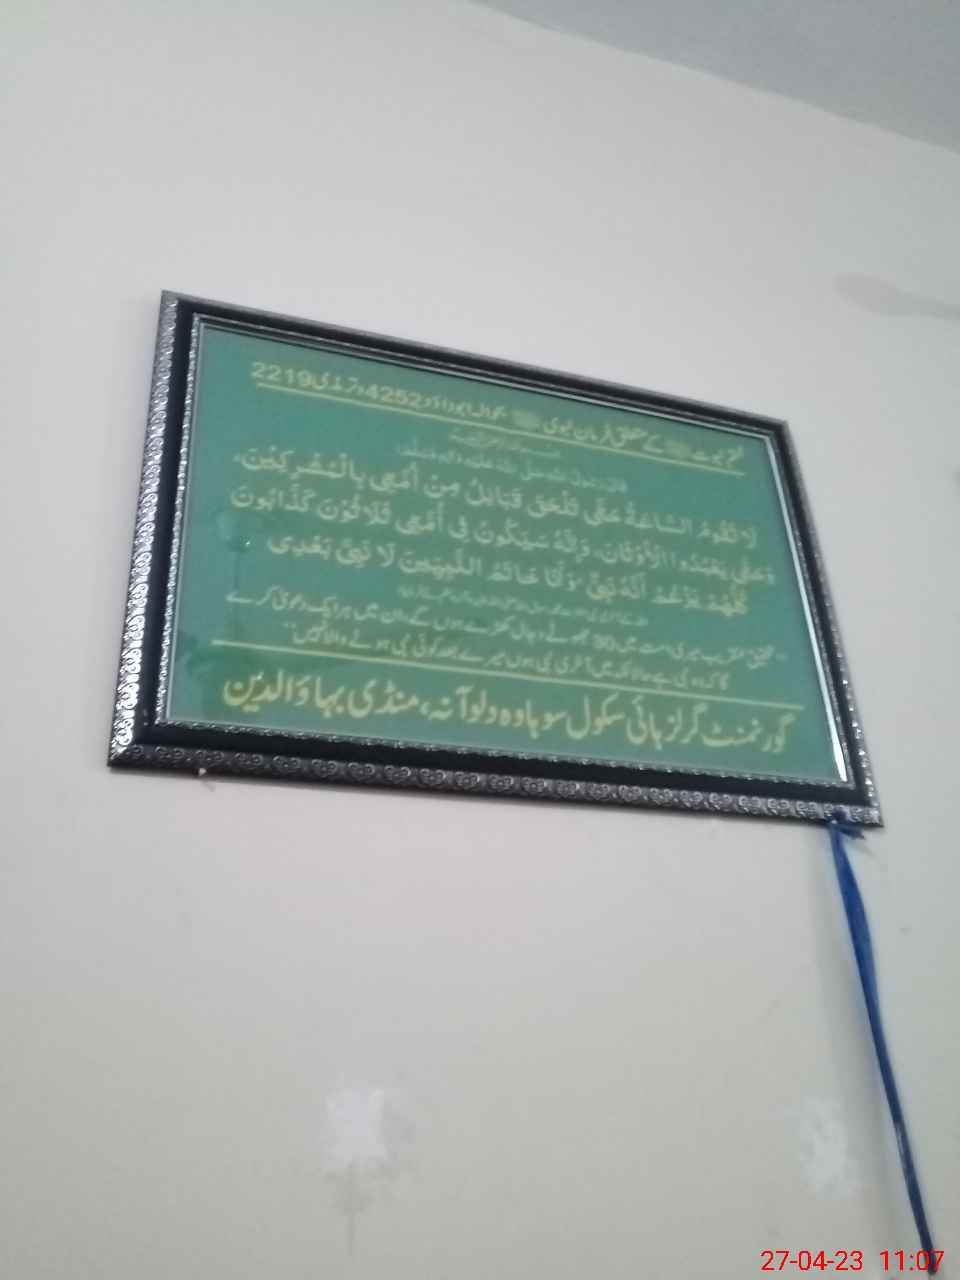 ختم نبوت ﷺ کے متعلق فرمان نبوی ﷺ بحوالہ ابوداؤد 4252 و ترمذی 2219
لَا تَقُومُ السَّاعَةُ حَتّٰى تَلْحَقَ قَبَائِلُ مِنْ أُمَّتِي بِالْمُشْرِكِيْنَ،
وَحَتّٰى يَعْبُدُوا الْأَوْثَانَ، وَإِنَّهُ سَيَكُونُ فِي أُمَّتِي ثَلَاثُوْنَ كَذَّابُونَ
كُلُّهُمْ يَزْعُمُ أَنَّهُ نَبِيٌّ وَأَنَا خَاتَمُ النَّبِيِّينَ لَا نَبِيَّ بَعْدِي
"تحقیق عنقریب میری امت میں 30 جھوٹے دجال کھڑے ہوں گے، ان میں ہر ایک دعویٰ کرے
گا کہ وہ نبی ہے حالانکہ میں آخری نبی ہوں میرے بعد کوئی نبی ہونے والا نہیں"
گورنمنٹ گرلز ہائی سکول سوہاوہ دلوآنہ، منڈی بہاؤالدین
27-04-23 11:07